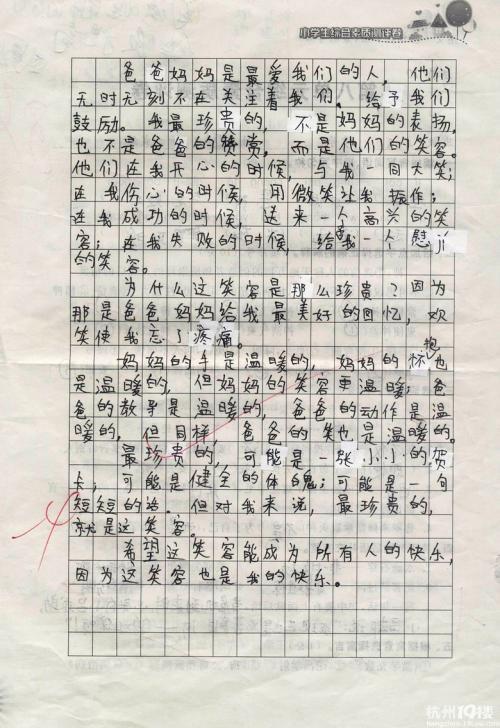 小学生综合素质测评卷
爸爸妈妈是最爱我们的人。他们
无时无刻不在关注着我们。给予我们
鼓励。我最珍贵的,不是妈妈的表扬,
也不是爸爸的赞赏,而是他们的笑容。
他们在我开心的时候,与我一同大笑;
在我伤心的时候,用微笑让我振作;
在我成功的时候,送来一个高兴的笑
容;在我失败的时候,给我一个慰
的笑容。
为什么这笑容是那么珍贵?因为
那是爸爸妈妈给我最美好的回忆,欢
笑使我忘了疼痛。
妈妈的手是温暖的,妈妈的怀抱也
是温暖的,但妈妈的笑容更温暖;爸
爸的教导是温暖的,爸爸的动作是温
暖的。但同样,爸爸的笑也是温暖的。
最珍贵的,可能是一张小小的贺
卡,可能是健全的体魄;可能是一句
短短的话。但对我来说,最珍贵的,
就是这笑容。
希望这笑容能成为所有人的快乐,
因为这笑容也是我的快乐。
杭州19楼